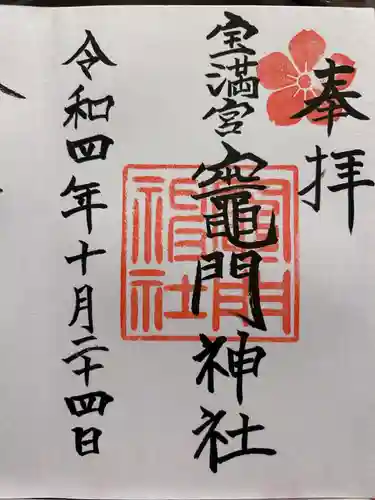 奉拝
宝満宮
竈門神社
竈門
神社
令和四年十月二十四日